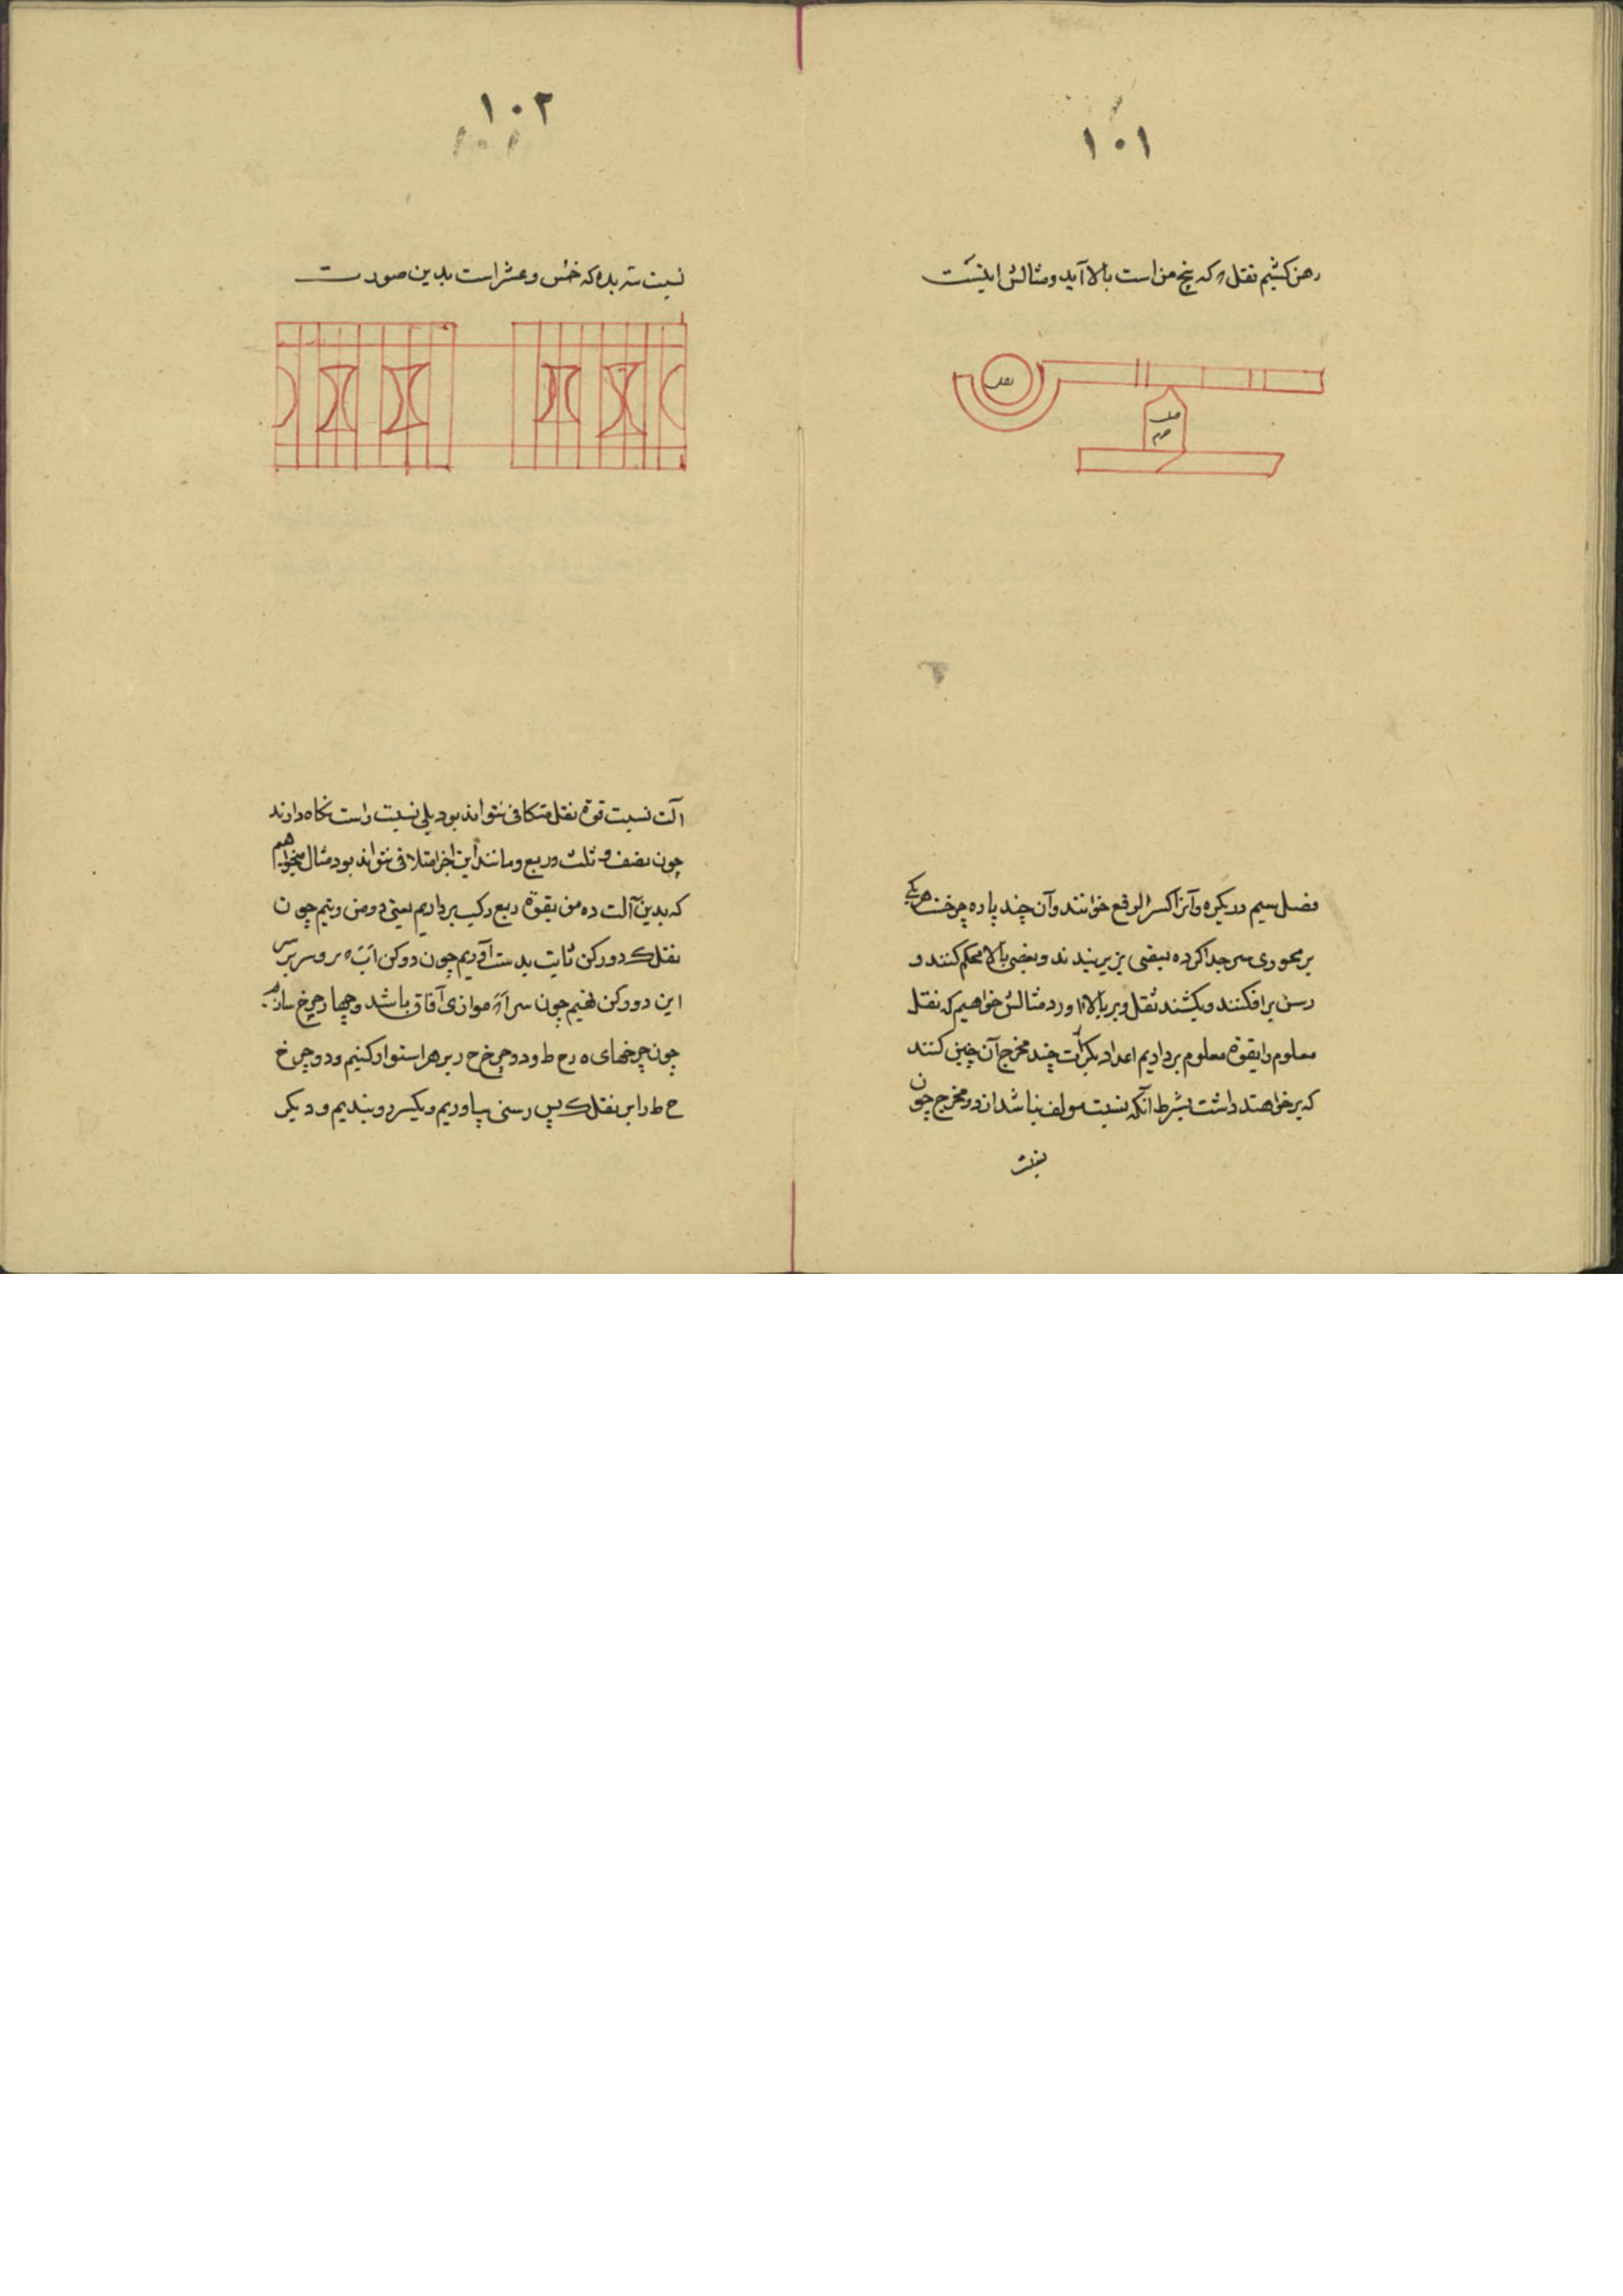 ١٠١
رهن كشيم نقل ٥ كه پنج من است بالا آيد و مثالش اينست
فصل سيم در بكره و آنرا كسر الرفع خوانند و آن چند پاره چرخست هر يكى
بر محورى سر جدا كرده بعضى بزير بندند و بعضى بالا محكم كنند و
رسن برافكنند و بكشند ثقل و بر بالا آورد مثالش خواهيم كه نقل
معلوم را بقوة معلوم برداريم اعداد بكرات چند مخرج آن چيز كنند
كه بر خواهند داشت بشرط آنكه نسبت مولف نباشد از دو مخرج چون
نسبت
١٠٢
نسبت سه بده كه خمس و عشر است بدين صورت
آلت نسبت قوة نقل متكافى نتواند بود بلى نسبت راست نكاه دارند
چون نصف و ثلث و ربع و مانند اين اجزا متلافى نتواند بود مثال ميخواهيم
كه بدين آلت ده من بقوة ربع ركيب برداريم يعنى دو من و نيم چون
نقل ك دو ركن ثابت بدست آوريم چون دو ركن اب ه ر و سر بر سر
اين دو ركن نهيم چون سر آه موازى آفاق باشد و چهار چرخ سازيم
چون چرخهاى ه ر ح ط و دو چرخ ح ر بر هر استوار كنيم و دو چرخ
ح ط را بر نقل ك پس رسنى بياوريم و يكسر دو بنديم و ديكر